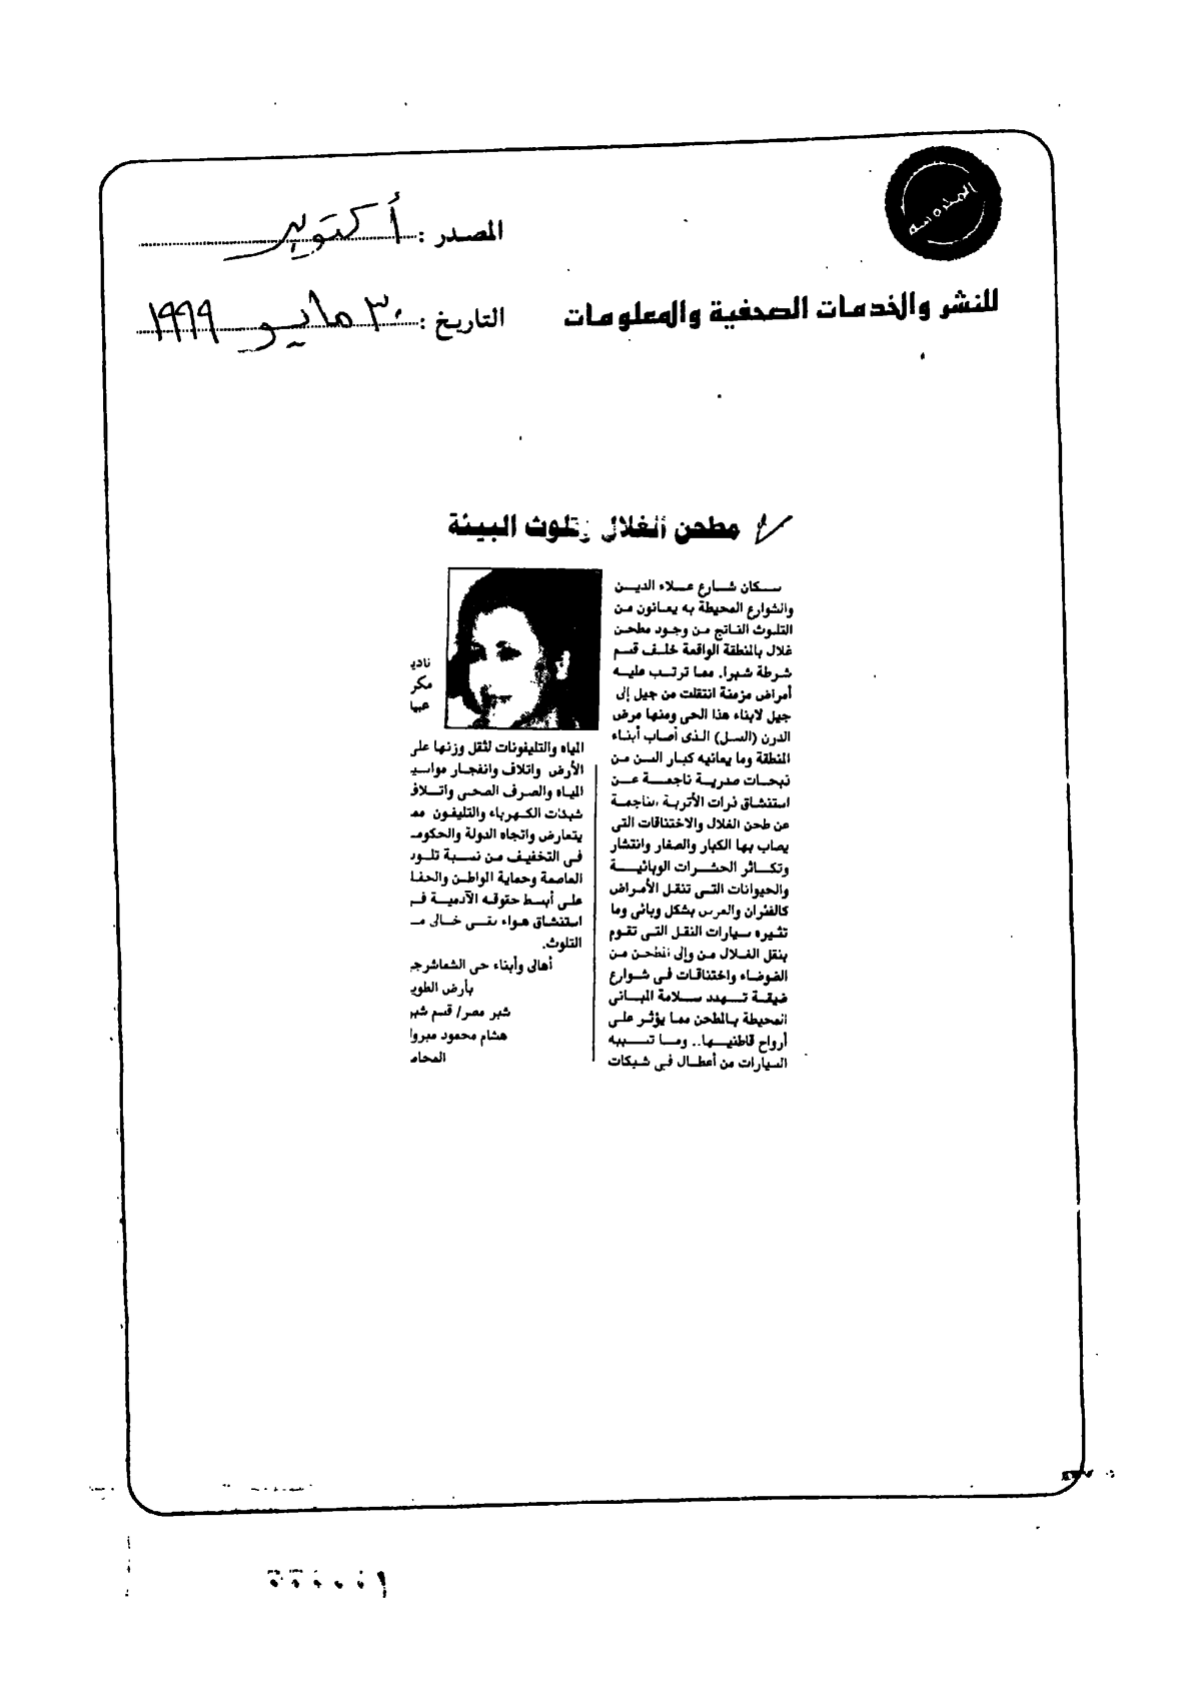 المصدر : أكتوبر
للنشر والخدمات الصحفية والمعلومات
التاريخ : ٣٠ مايو ١٩٩٩
مطحن الغلال وتلوث البيئة
سكان شارع علاء الدين
والشوارع المحيطة به يعانون من
التلوث الناتج من وجود مطحن
غلال بالمنطقة الواقعة خلف قسم
شرطة شبرا. مما ترتب عليه
أمراض مزمنة انتقلت من جيل إلى
جيل لابناء هذا الحى ومنها مرض
الدرن (السل) الذى أصاب أبناء
المنطقة وما يعانيه كبار السن من
ذبحات صدرية ناجمة عن
استنشاق ذرات الأتربة الناجمة
عن طحن الغلال والاختناقات التى
يصاب بها الكبار والصغار وانتشار
وتكاثر الحشرات الوبائية
والحيوانات التى تنقل الأمراض
كالفئران والعرس بشكل وبائى وما
تثيره سيارات النقل التى تقوم
بنقل الغلال من وإلى المطحن من
الضوضاء واختناقات فى شوارع
ضيقة تهدد سلامة المبانى
المحيطة بالمطحن مما يؤثر على
أرواح قاطنيها.. وما تسببه
السيارات من أعطال فى شبكات
نادي
مكر
عبيا
المياه والتليفونات لثقل وزنها على
الأرض واتلاف وانفجار مواسي
المياه والصرف الصحى واتلاف
شبكات الكهرباء والتليفون مم
يتعارض واتجاه الدولة والحكوم
فى التخفيف من نسبة تلو
العاصمة وحماية المواطن والحفا
على أبسط حقوقه الآدمية ف
استنشاق هواء نقى خالى م
التلوث.
أهالى وأبناء حى الشماشرج
بأرض الطوي
شبر مصر/ قسم شبر
هشام محمود مبروا
المحام